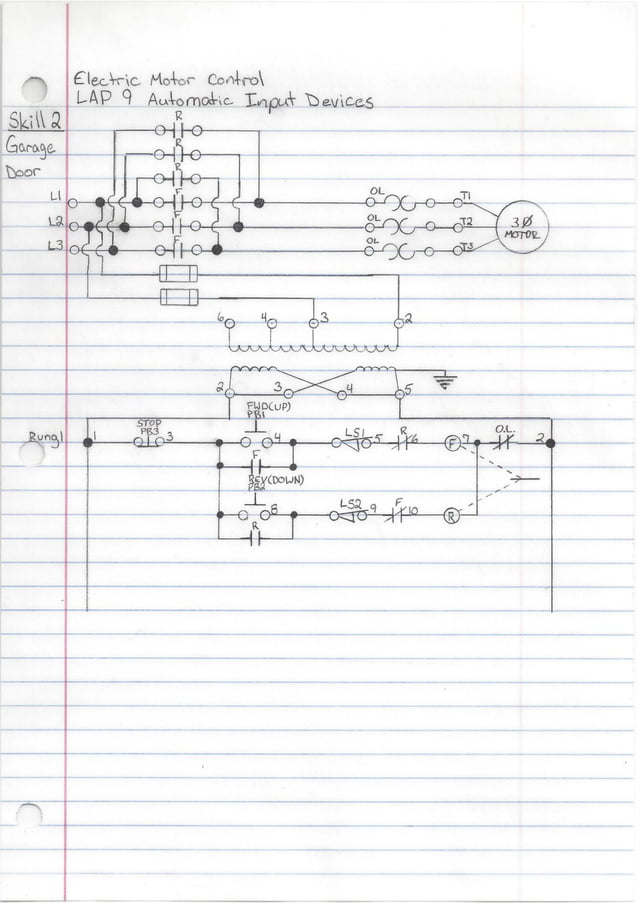 Electric Motor Control
LAP 9 Automatic Input Devices
Skill 2
Garage
Door
R
R
R
L1 F OL T1
L2 F OL T2 3Ø
MOTOR
L3 F OL T3
6 4 3 2
2 3 4 5
FWD(UP)
PB1
STOP
PB3
Rung1 1 3 4 LS1 5 R 6 F 7 O.L. 2
F
REV(DOWN)
PB2
8 LS2 9 F 10 R
R